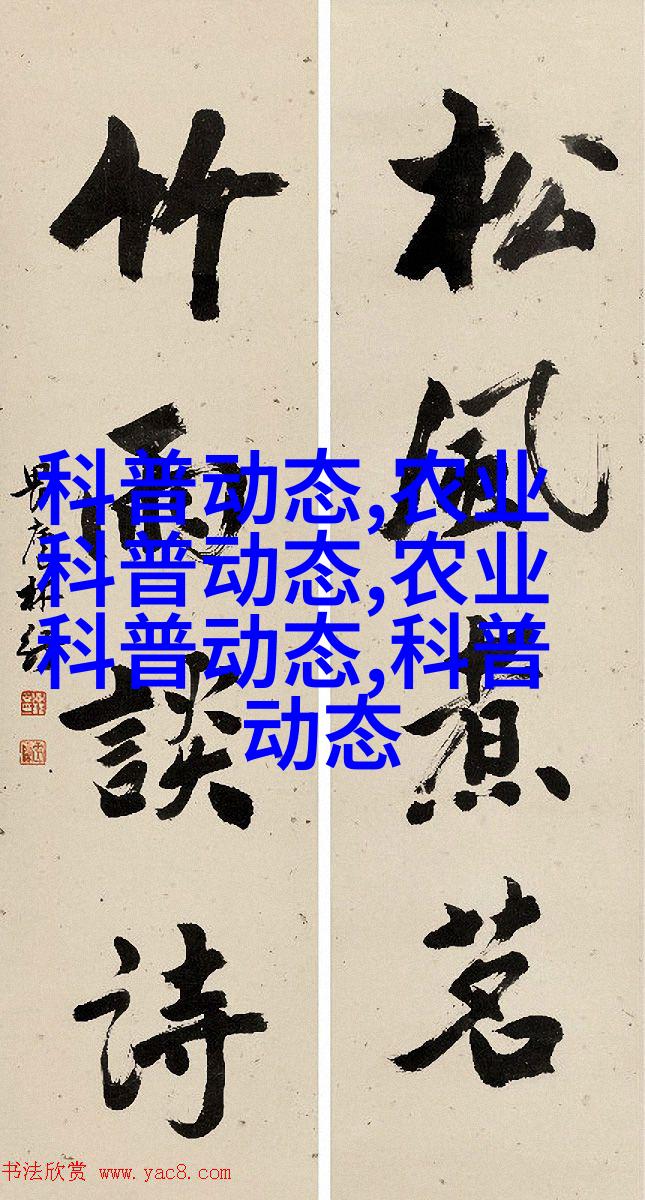 松風煮茗
竹雨談詩
科普动态,农业
科普动态,农业
科普动态,科普
动态
书法欣赏 www.yac8.com